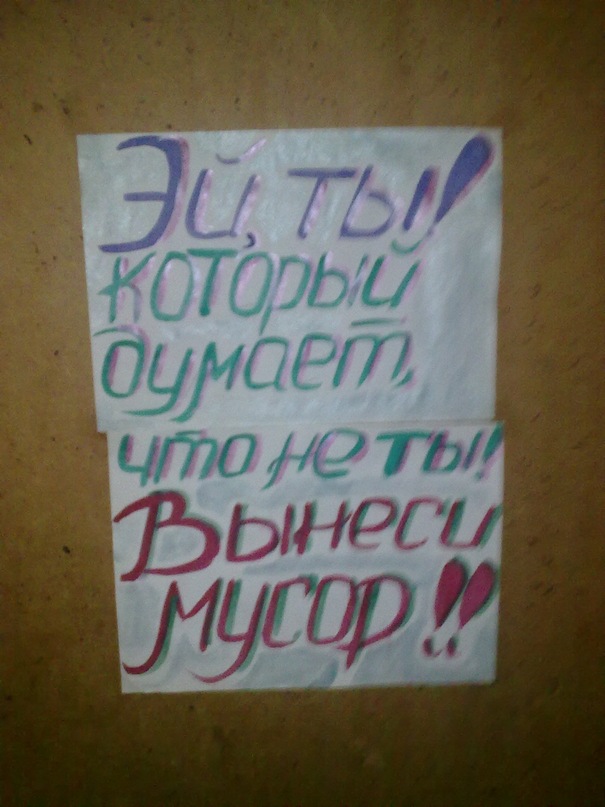 Эй, ты!
который
думает,
что не ты!
Вынеси
мусор!!